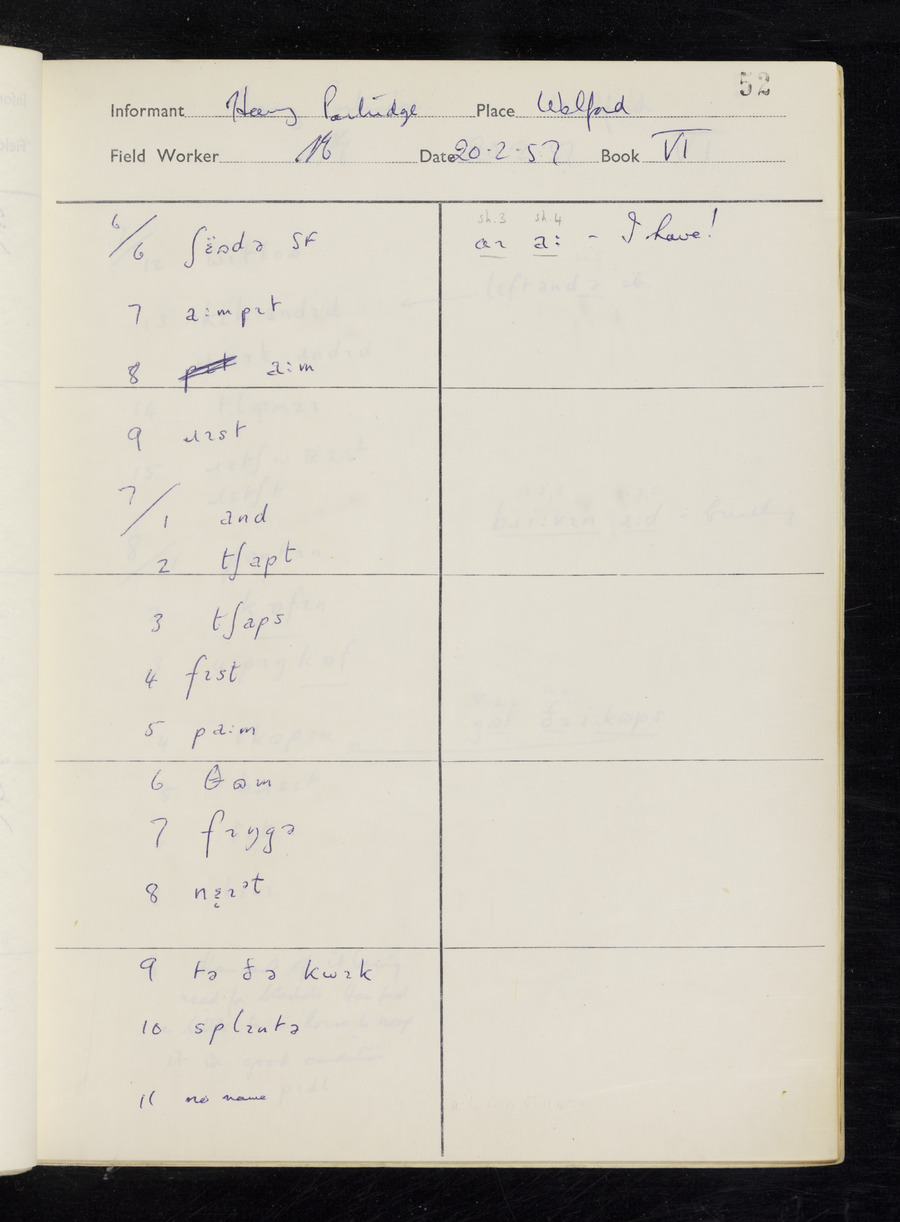 52
Informant Harry Partridge Place Welford
Field Worker Date 20.2.57 Book VI
6/6 ʃɛ̈ɔdə SF
sh.3 sh.4
ɑɪ a: - I have!
7 a:mpɪt
8 a:m
9 ɹɪst
7/1 and
2 tʃapt
3 tʃaps
4 fɪst
5 pa:m
6 θɷm
7 fɪŋgə
8 nɛ̣ɪᵊt
9 tə ðə kwɪk
10 splɪntə
11 no name